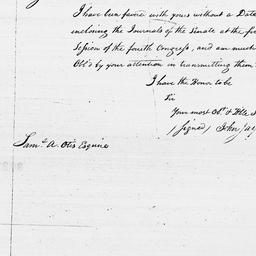 I have been favor'd with yours without a Date
inclosing the Journals of the Senate at the fir
Session of the fourth Congress, and am much
Obl'd by your attention in transmitting them
I have the Honor to be
Sir
Your most Ob.t & Hble S
(signed) John Jay
Sam.l A. Otis Esquire